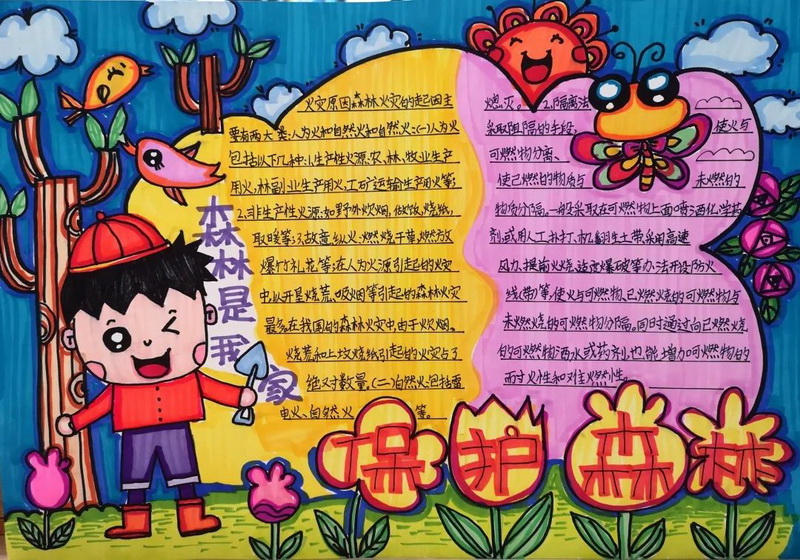 火灾原因森林火灾的起因主
要有两大类:人为火和自然火和自然火:(一)人为火
包括以下几种:1.生产性火源:农、林、牧业生产
用火,林副业生产用火,工矿运输生产用火等;
2.非生产性火源:如野外炊烟,做饭,烧纸,
取暖等;3.故意纵火:燃烧干草,燃放
爆竹礼花等;在人为火源引起的火灾
中,以开垦烧荒、吸烟等引起的森林火灾
最多,在我国的森林火灾中,由于炊烟、
烧荒和上坟烧纸引起的火灾占了
绝对数量,(二)自然火:包括雷
电火、自然火等。
燃灭。2.隔离法
采取阻隔的手段,使火与
可燃物分离、
使已燃的物质与未燃的
物质分隔。一般采取在可燃物上面喷洒化学药
剂,或用人工扑打、机翻生土带采用高速
风力、提前火烧、适度爆破等办法开设防火
线(带)等,使火与可燃物、已燃烧的可燃物与
未燃烧的可燃物分隔。同时通过向已燃烧
的可燃物洒水或药剂,也能增加可燃物的
耐火性和难燃性。
森林是我家
保护森林